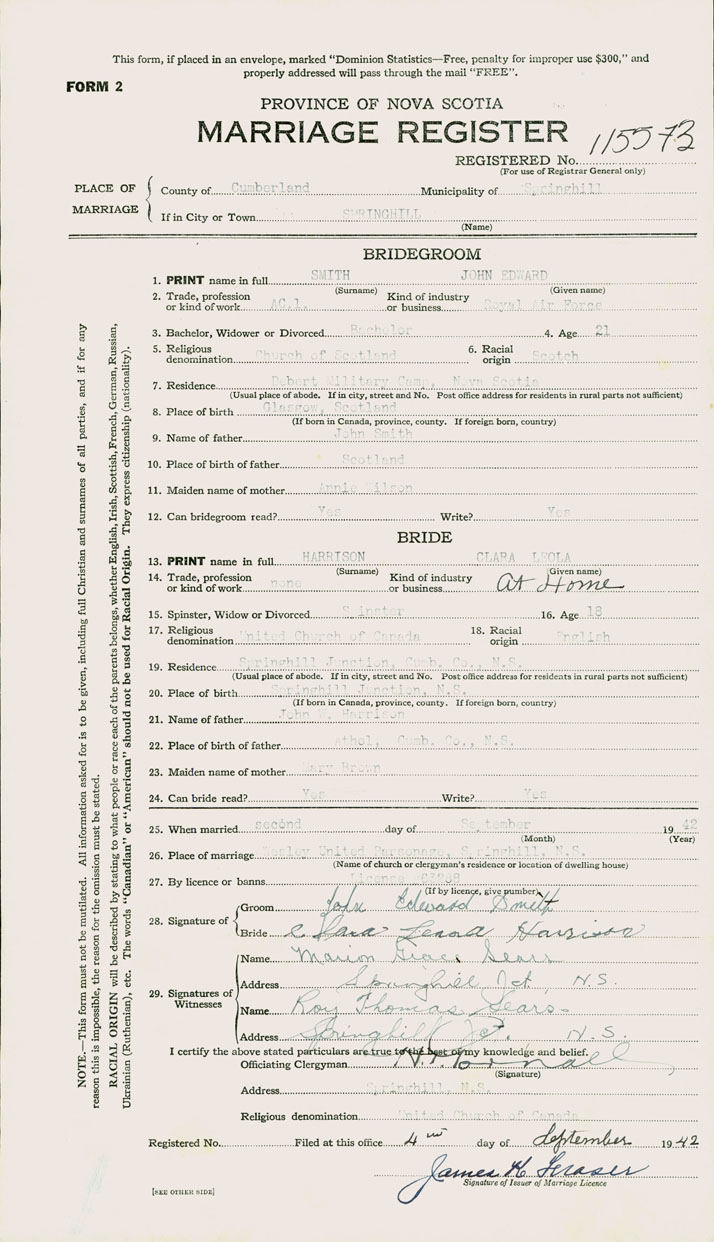 This form, if placed in an envelope, marked "Dominion Statistics—Free, penalty for improper use $300," and
properly addressed will pass through the mail "FREE".
FORM 2
PROVINCE OF NOVA SCOTIA
MARRIAGE REGISTER
115573
REGISTERED No.
(For use of Registrar General only)
PLACE OF MARRIAGE
County of Cumberland Municipality of Springhill
If in City or Town SPRINGHILL
(Name)
BRIDEGROOM
1. PRINT name in full SMITH JOHN EDWARD
(Surname) (Given name)
2. Trade, profession or kind of work AC.1. Kind of industry or business Royal Air Force
3. Bachelor, Widower or Divorced Bachelor 4. Age 21
5. Religious denomination Church of Scotland 6. Racial origin Scotch
7. Residence Debert Military Camp, Nova Scotia
(Usual place of abode. If in city, street and No. Post office address for residents in rural parts not sufficient)
8. Place of birth Glasgow, Scotland
(If born in Canada, province, county. If foreign born, country)
9. Name of father John Smith
10. Place of birth of father Scotland
11. Maiden name of mother Annie Wilson
12. Can bridegroom read? Yes Write? Yes
BRIDE
13. PRINT name in full HARRISON CLARA LEOLA
(Surname) (Given name)
14. Trade, profession or kind of work none Kind of industry or business At Home
15. Spinster, Widow or Divorced Spinster 16. Age 18
17. Religious denomination United Church of Canada 18. Racial origin English
19. Residence Springhill Junction, Cumb. Co., N.S.
(Usual place of abode. If in city, street and No. Post office address for residents in rural parts not sufficient)
20. Place of birth Springhill Junction, N.S.
(If born in Canada, province, county. If foreign born, country)
21. Name of father John Harrison
22. Place of birth of father Athol, Cumb. Co., N.S.
23. Maiden name of mother Mary Brown
24. Can bride read? Yes Write? Yes
25. When married second day of September 1942
(Month) (Year)
26. Place of marriage Wesley United Parsonage, Springhill, N.S.
(Name of church or clergyman's residence or location of dwelling house)
27. By licence or banns License
(If by licence, give number)
28. Signature of
Groom John Edward Smith
Bride Clara Leola Harrison
29. Signatures of Witnesses
Name Marion Grace Sears
Address Springhill Jct. N.S.
Name Roy Thomas Sears
Address Springhill Jct. N.S.
I certify the above stated particulars are true to the best of my knowledge and belief.
Officiating Clergyman
(Signature)
Address Springhill, N.S.
Religious denomination United Church of Canada
Registered No. Filed at this office 4 day of September 1942
James H Fraser
Signature of Issuer of Marriage Licence
[SEE OTHER SIDE]
NOTE.—This form must not be mutilated. All information asked for is to be given, including full Christian and surnames of all parties, and if for any
reason this is impossible, the reason for the omission must be stated.
RACIAL ORIGIN will be described by stating to what people or race each of the parents belongs, whether English, Irish, Scottish, French, German, Russian,
Ukrainian (Ruthenian), etc. The words "Canadian" or "American" should not be used for Racial Origin. They express citizenship (nationality).